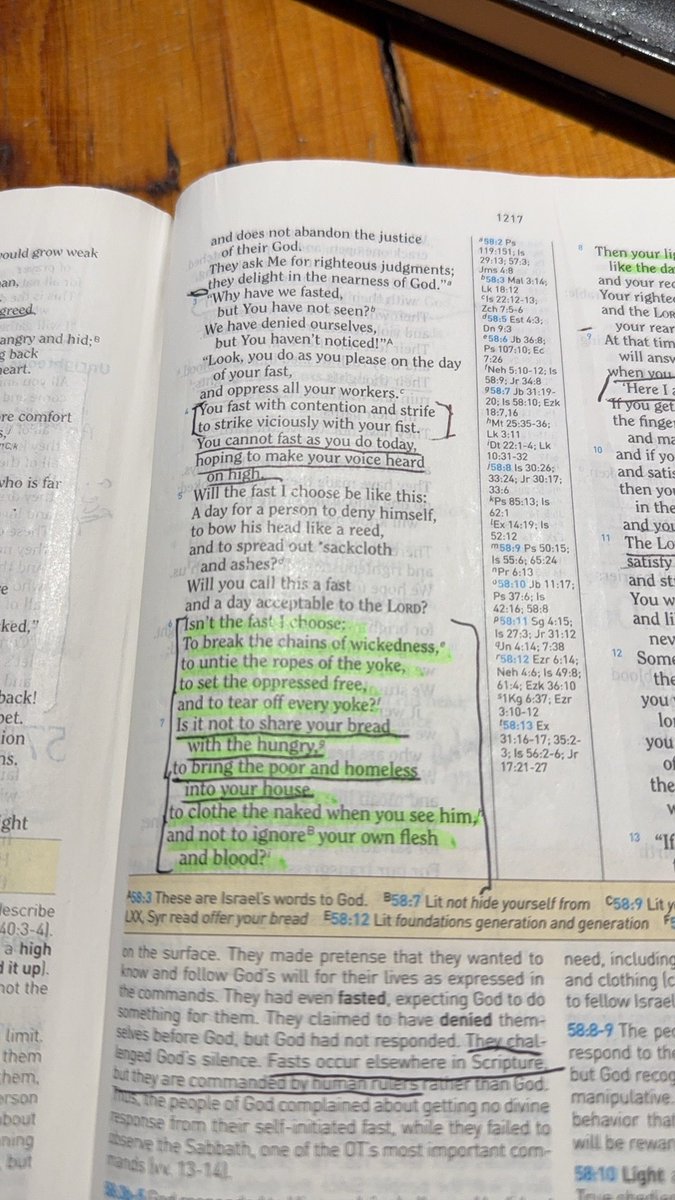 ould grow weak
an,
greed,
angry and hid;ᴮ
g back
heart.
re comfort
who is far
ked,”
back!
pet.
ion
ns.
ght
describe
40:3-4).
a high
d it up).
not the
limit.
them
them,
erson
about
ning
, but
1217
and does not abandon the justice
of their God.
They ask Me for righteous judgments;
they delight in the nearness of God.”ᵃ
3 “Why have we fasted,
but You have not seen?ᵇ
We have denied ourselves,
but You haven’t noticed!”ᴬ
“Look, you do as you please on the day
of your fast,
and oppress all your workers.ᶜ
4 You fast with contention and strife
to strike viciously with your fist.
You cannot fast as you do today,
hoping to make your voice heard
on high.
5 Will the fast I choose be like this:
A day for a person to deny himself,
to bow his head like a reed,
and to spread out *sackcloth
and ashes?ᵈ
Will you call this a fast
and a day acceptable to the LORD?
6 Isn’t the fast I choose:
To break the chains of wickedness,ᵉ
to untie the ropes of the yoke,
to set the oppressed free,
and to tear off every yoke?ᶠ
7 Is it not to share your bread
with the hungry,ᵍ
to bring the poor and homeless
into your house,
to clothe the naked when you see him,ʰ
and not to ignoreᴮ your own flesh
and blood?ⁱ
ᵃ58:2 Ps
119:151; Is
29:13; 57:3;
Jms 4:8
ᵇ58:3 Mal 3:14;
Lk 18:12
ᶜIs 22:12-13;
Zch 7:5-6
ᵈ58:5 Est 4:3;
Dn 9:3
ᵉ58:6 Jb 36:8;
Ps 107:10; Ec
7:26
ᶠNeh 5:10-12; Is
58:9; Jr 34:8
ᵍ58:7 Jb 31:19-
20; Is 58:10; Ezk
18:7,16
ʰMt 25:35-36;
Lk 3:11
ⁱDt 22:1-4; Lk
10:31-32
ʲ58:8 Is 30:26;
33:24; Jr 30:17;
33:6
ᵏPs 85:13; Is
62:1
ˡEx 14:19; Is
52:12
ᵐ58:9 Ps 50:15;
Is 55:6; 65:24
ⁿPr 6:13
ᵒ58:10 Jb 11:17;
Ps 37:6; Is
42:16; 58:8
ᵖ58:11 Sg 4:15;
Is 27:3; Jr 31:12
qJn 4:14; 7:38
ʳ58:12 Ezr 6:14;
Neh 4:6; Is 49:8;
61:4; Ezk 36:10
ˢ1Kg 6:37; Ezr
3:10-12
ᵗ58:13 Ex
31:16-17; 35:2-
3; Is 56:2-6; Jr
17:21-27
8 Then your lig
like the da
and your rec
Your righte
and the LOR
your rear
9 At that tim
will answ
when you
‘Here I a
If you get
the finger
and ma
10 and if yo
and satis
then you
in the
and you
11 The Lo
satisfy
and st
You w
and li
nev
12 Some
the
you
lo
you
of
the
w
13 “If
ᴬ58:3 These are Israel’s words to God. ᴮ58:7 Lit not hide yourself from ᶜ58:9 Lit y
LXX, Syr read offer your bread ᴱ58:12 Lit foundations generation and generation
on the surface. They made pretense that they wanted to
know and follow God’s will for their lives as expressed in
the commands. They had even fasted, expecting God to do
something for them. They claimed to have denied them-
selves before God, but God had not responded. They chal-
lenged God’s silence. Fasts occur elsewhere in Scripture,
but they are commanded by human rulers rather than God.
Thus, the people of God complained about getting no divine
response from their self-initiated fast, while they failed to
observe the Sabbath, one of the OT’s most important com-
mands (vv. 13-14).
need, including
and clothing (c
to fellow Israel
58:8-9 The peo
respond to the
but God recog
manipulative
behavior that
will be rewar
58:10 Light a